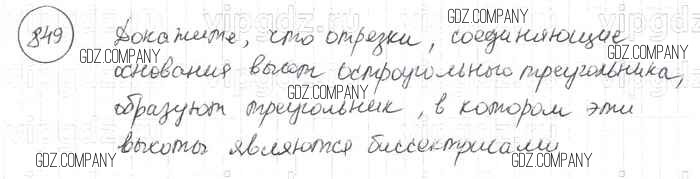 849 Докажите, что отрезки, соединяющие
основания высот остроугольного треугольника,
образуют треугольник, в котором эти
высоты являются биссектрисами
GDZ.COMPANY
GDZ.COMPANY
GDZ.COMPANY
GDZ.COMPANY
GDZ.COMPANY
GDZ.COMPANY
GDZ.COMPANY
GDZ.COMPANY